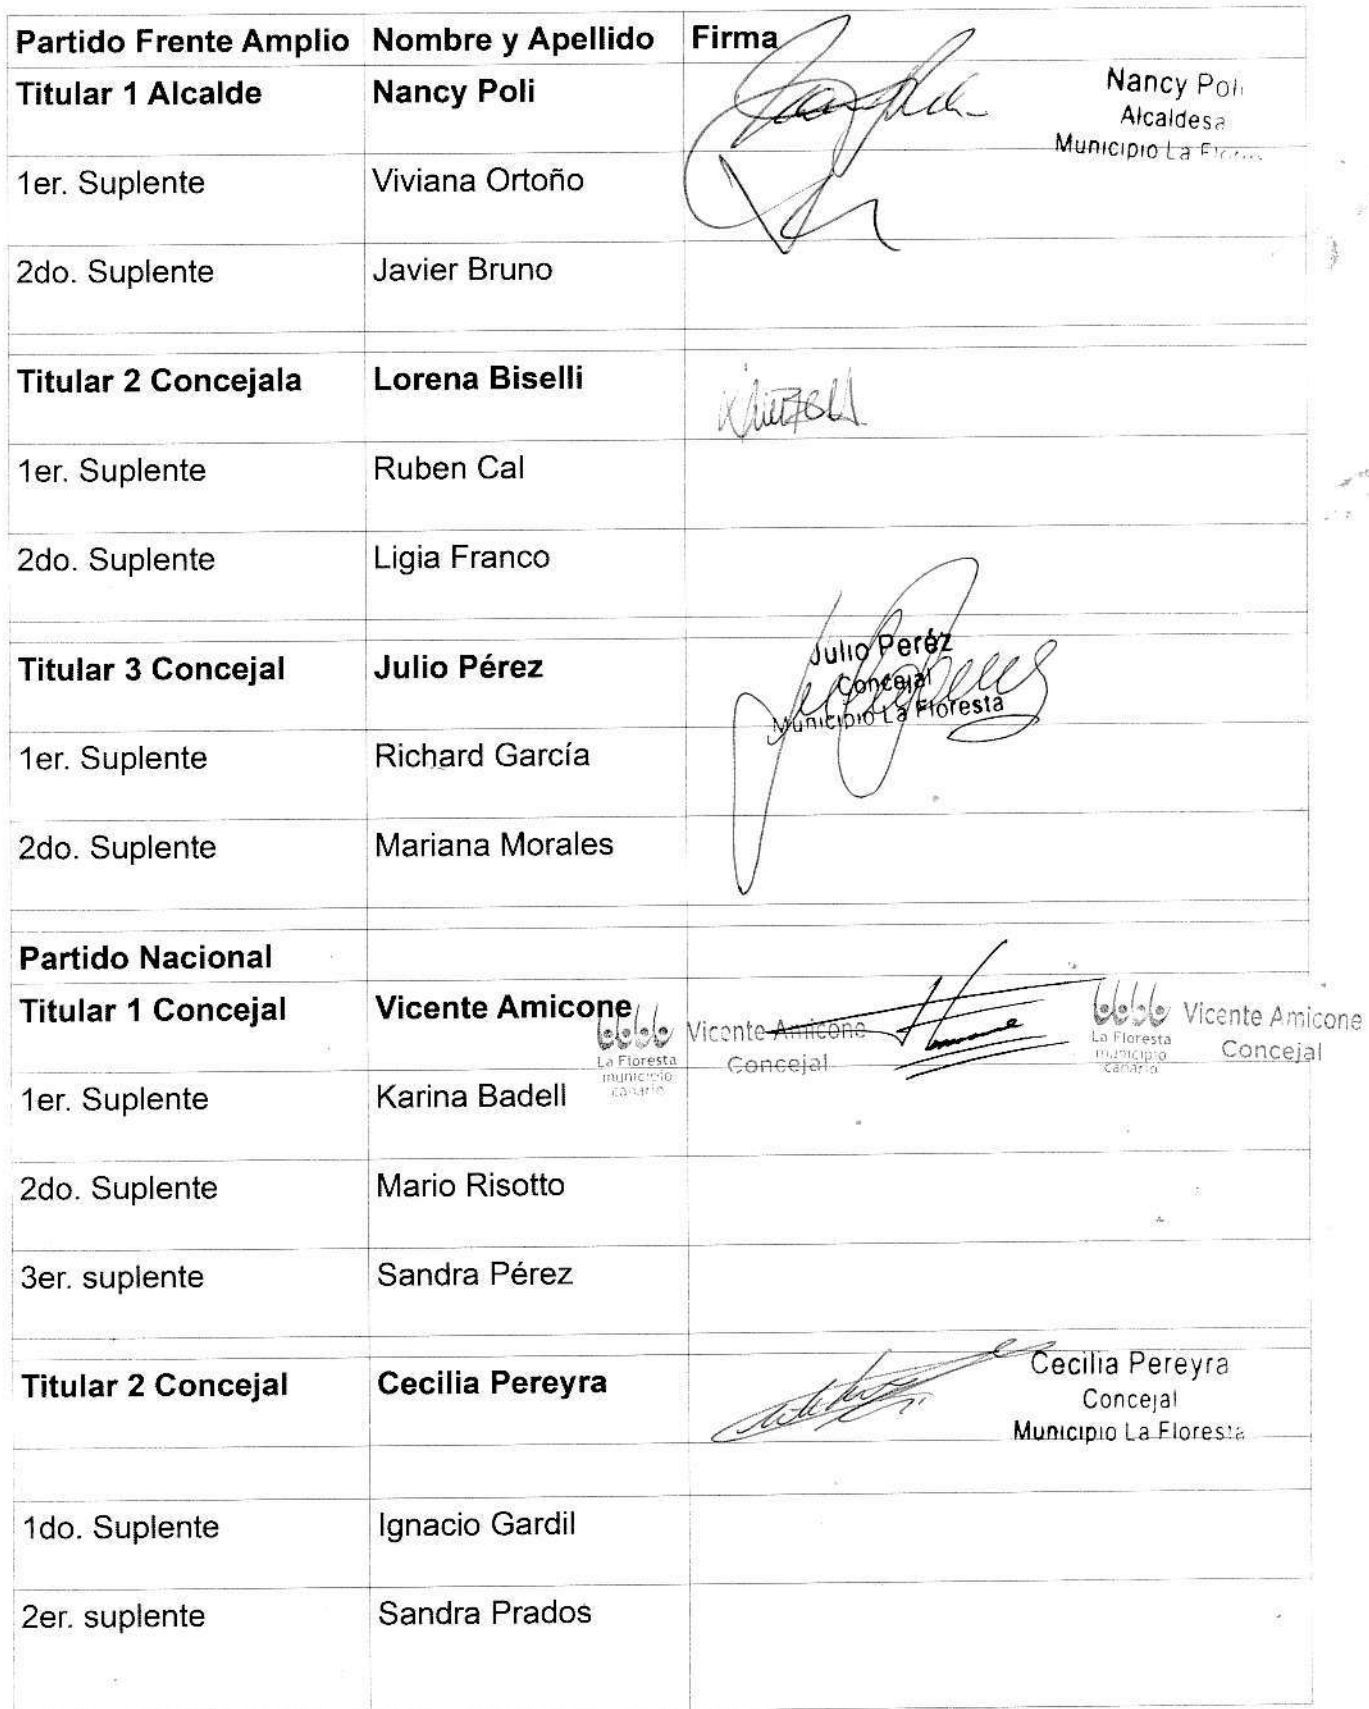 Partido Frente Amplio Nombre y Apellido Firma
Titular 1 Alcalde Nancy Poli
Nancy Poli
Alcaldesa
Municipio La
1er. Suplente Viviana Ortoño
2do. Suplente Javier Bruno
Titular 2 Concejala Lorena Biselli
1er. Suplente Ruben Cal
2do. Suplente Ligia Franco
Titular 3 Concejal Julio Pérez
Julio Peréz
Concejal
Municipio La Floresta
1er. Suplente Richard García
2do. Suplente Mariana Morales
Partido Nacional
Titular 1 Concejal Vicente Amicone
La Floresta
municipio
canario
Vicente Amicone
Concejal
La Floresta
municipio
canario
Vicente Amicone
Concejal
1er. Suplente Karina Badell
2do. Suplente Mario Risotto
3er. suplente Sandra Pérez
Titular 2 Concejal Cecilia Pereyra
Cecilia Pereyra
Concejal
Municipio La Floresta
1do. Suplente Ignacio Gardil
2er. suplente Sandra Prados